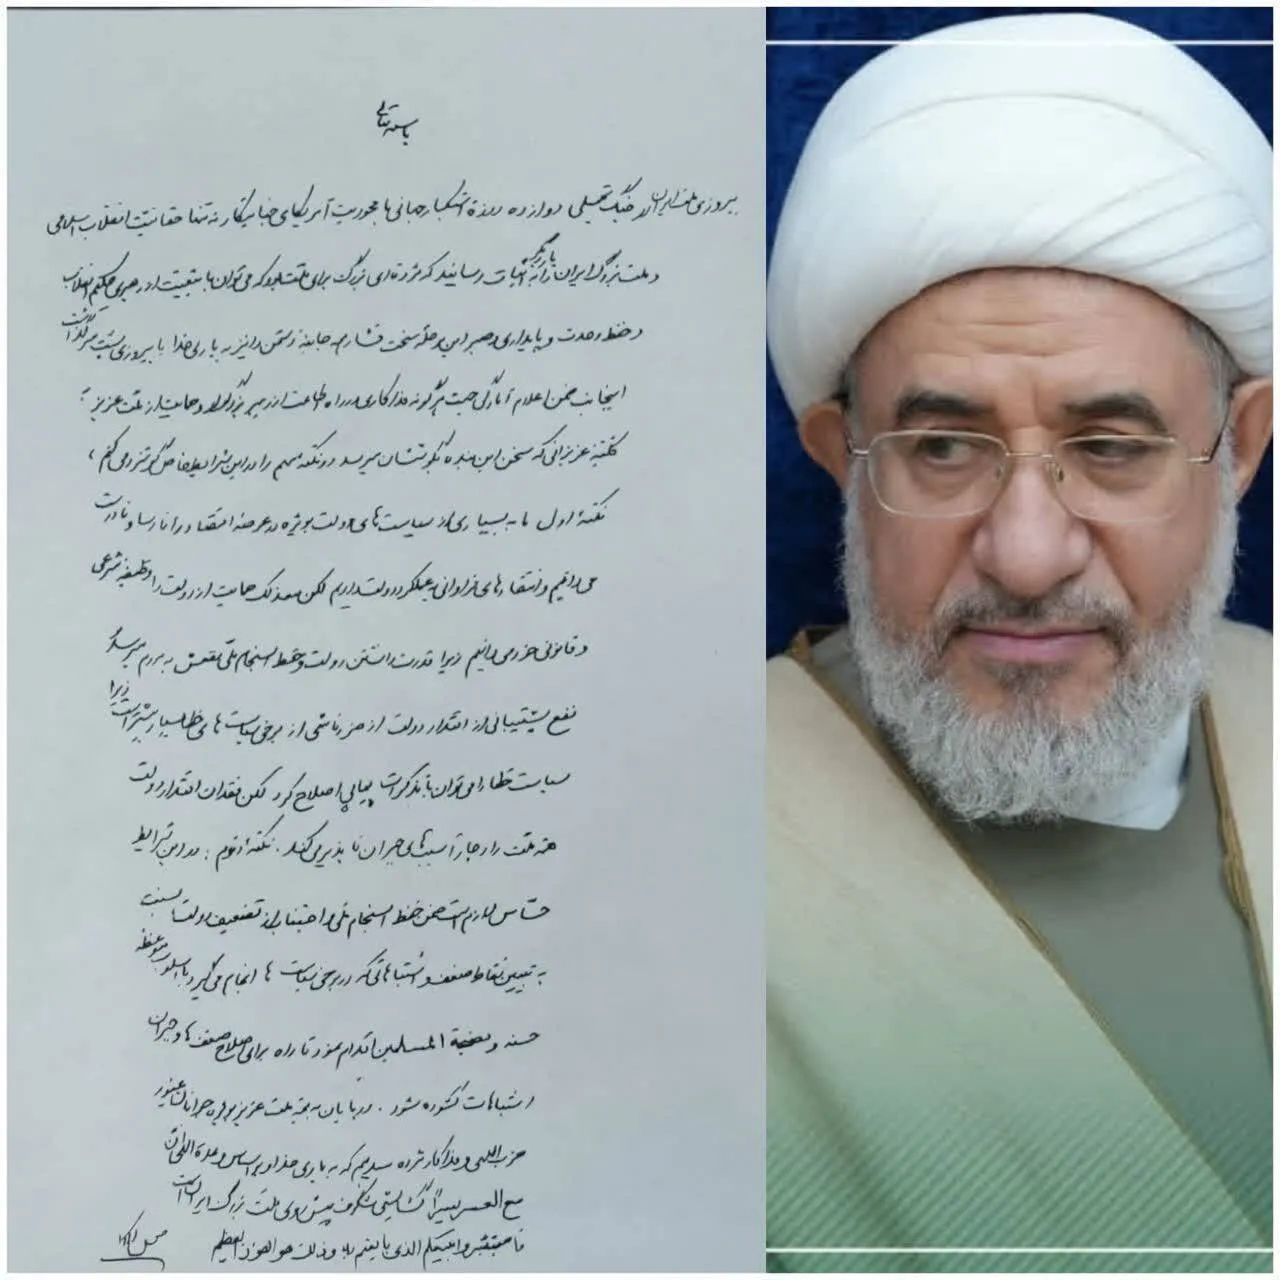 باسمه تعالی
پیروزی ملت ایران در جنگ تحمیلی دوازده روزهٔ استکبار جهانی با محوریت آمریکای جنایتکار نه تنها حقانیت انقلاب اسلامی
و ملت بزرگ ایران را بار دیگر به اثبات رسانید که مژده‌ای بزرگ برای ملت ما بود که می‌توان با تبعیت از رهبری حکیم انقلاب
و حفظ وحدت و پایداری و صبر این مرحلهٔ سخت فشار همه جانبه دشمن را نیز به یاری خدا با پیروزی پشت سر گذاشت
اینجانب ضمن اعلام آمادگی جهت هرگونه فداکاری در راه اطاعت از رهبر بزرگوار و حمایت از ملت عزیز به
کلیه عزیزانی که سخن این بنده به گوششان میرسد دو نکته مهم را در این شرایط خاص گوشزد می کنم ،
نکتهٔ اول ما به بسیاری از سیاست های دولت بویژه در عرصه اقتصاد را نارسا و نادرست
می دانیم و انتقادهای فراوانی به عملکرد دولت داریم لکن معذلک حمایت از دولت را وظیفه شرعی
و قانونی خود می دانیم زیرا قدرت داشتن دولت و حفظ انسجام ملی نفعش به مردم میرسد و
نفع پشتیبانی از اقتدار دولت از ضرر ناشی از برخی سیاست های خطا بسیار بیشتر است زیرا
سیاست خطا را می توان با تذکرات پیاپی اصلاح کرد لکن فقدان اقتدار دولت
همه ملت را دچار آسیب های جبران نا پذیر می کند . نکتهٔ دوم : در این شرایط
حساس لازم است ضمن حفظ انسجام ملی و اجتناب از تضعیف دولت نسبت
به تبیین نقاط ضعف و اشتباهاتی که در برخی سیاست ها انجام می گیرد با اسلوب موعظه
حسنه و نصیحة المسلمین اقدام نمود تا راه برای اصلاح ضعف ها و جبران
اشتباهات گشوده شود . در پایان به همه ملت عزیز بویژه جوانان غیور
حزب اللهی و فداکار مژده میدهم که به یاری خدا و بر اساس وعدة الهی ان
مع العسر یسراً گشایشی شگرف پیش روی ملت بزرگ ایران است
فاستبشروا ببیعکم الذی بایعتم به و ذلک هو الفوز العظیم
محسن اراکی